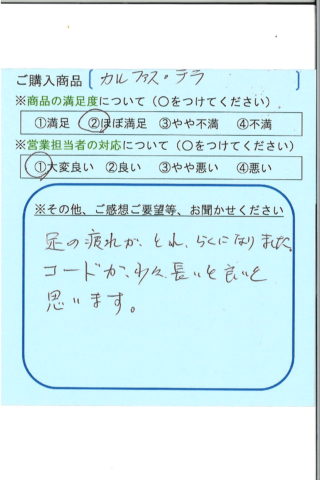 ご購入商品 〔 カルファス・テラ 〕
※商品の満足度について（○をつけてください）
①満足 ②ほぼ満足 ③やや不満 ④不満
※営業担当者の対応について（○をつけてください）
①大変良い ②良い ③やや悪い ④悪い
※その他、ご感想ご要望等、お聞かせください
足の疲れが、とれ、らくになりました。
コードが、少々長いと良いと
思います。